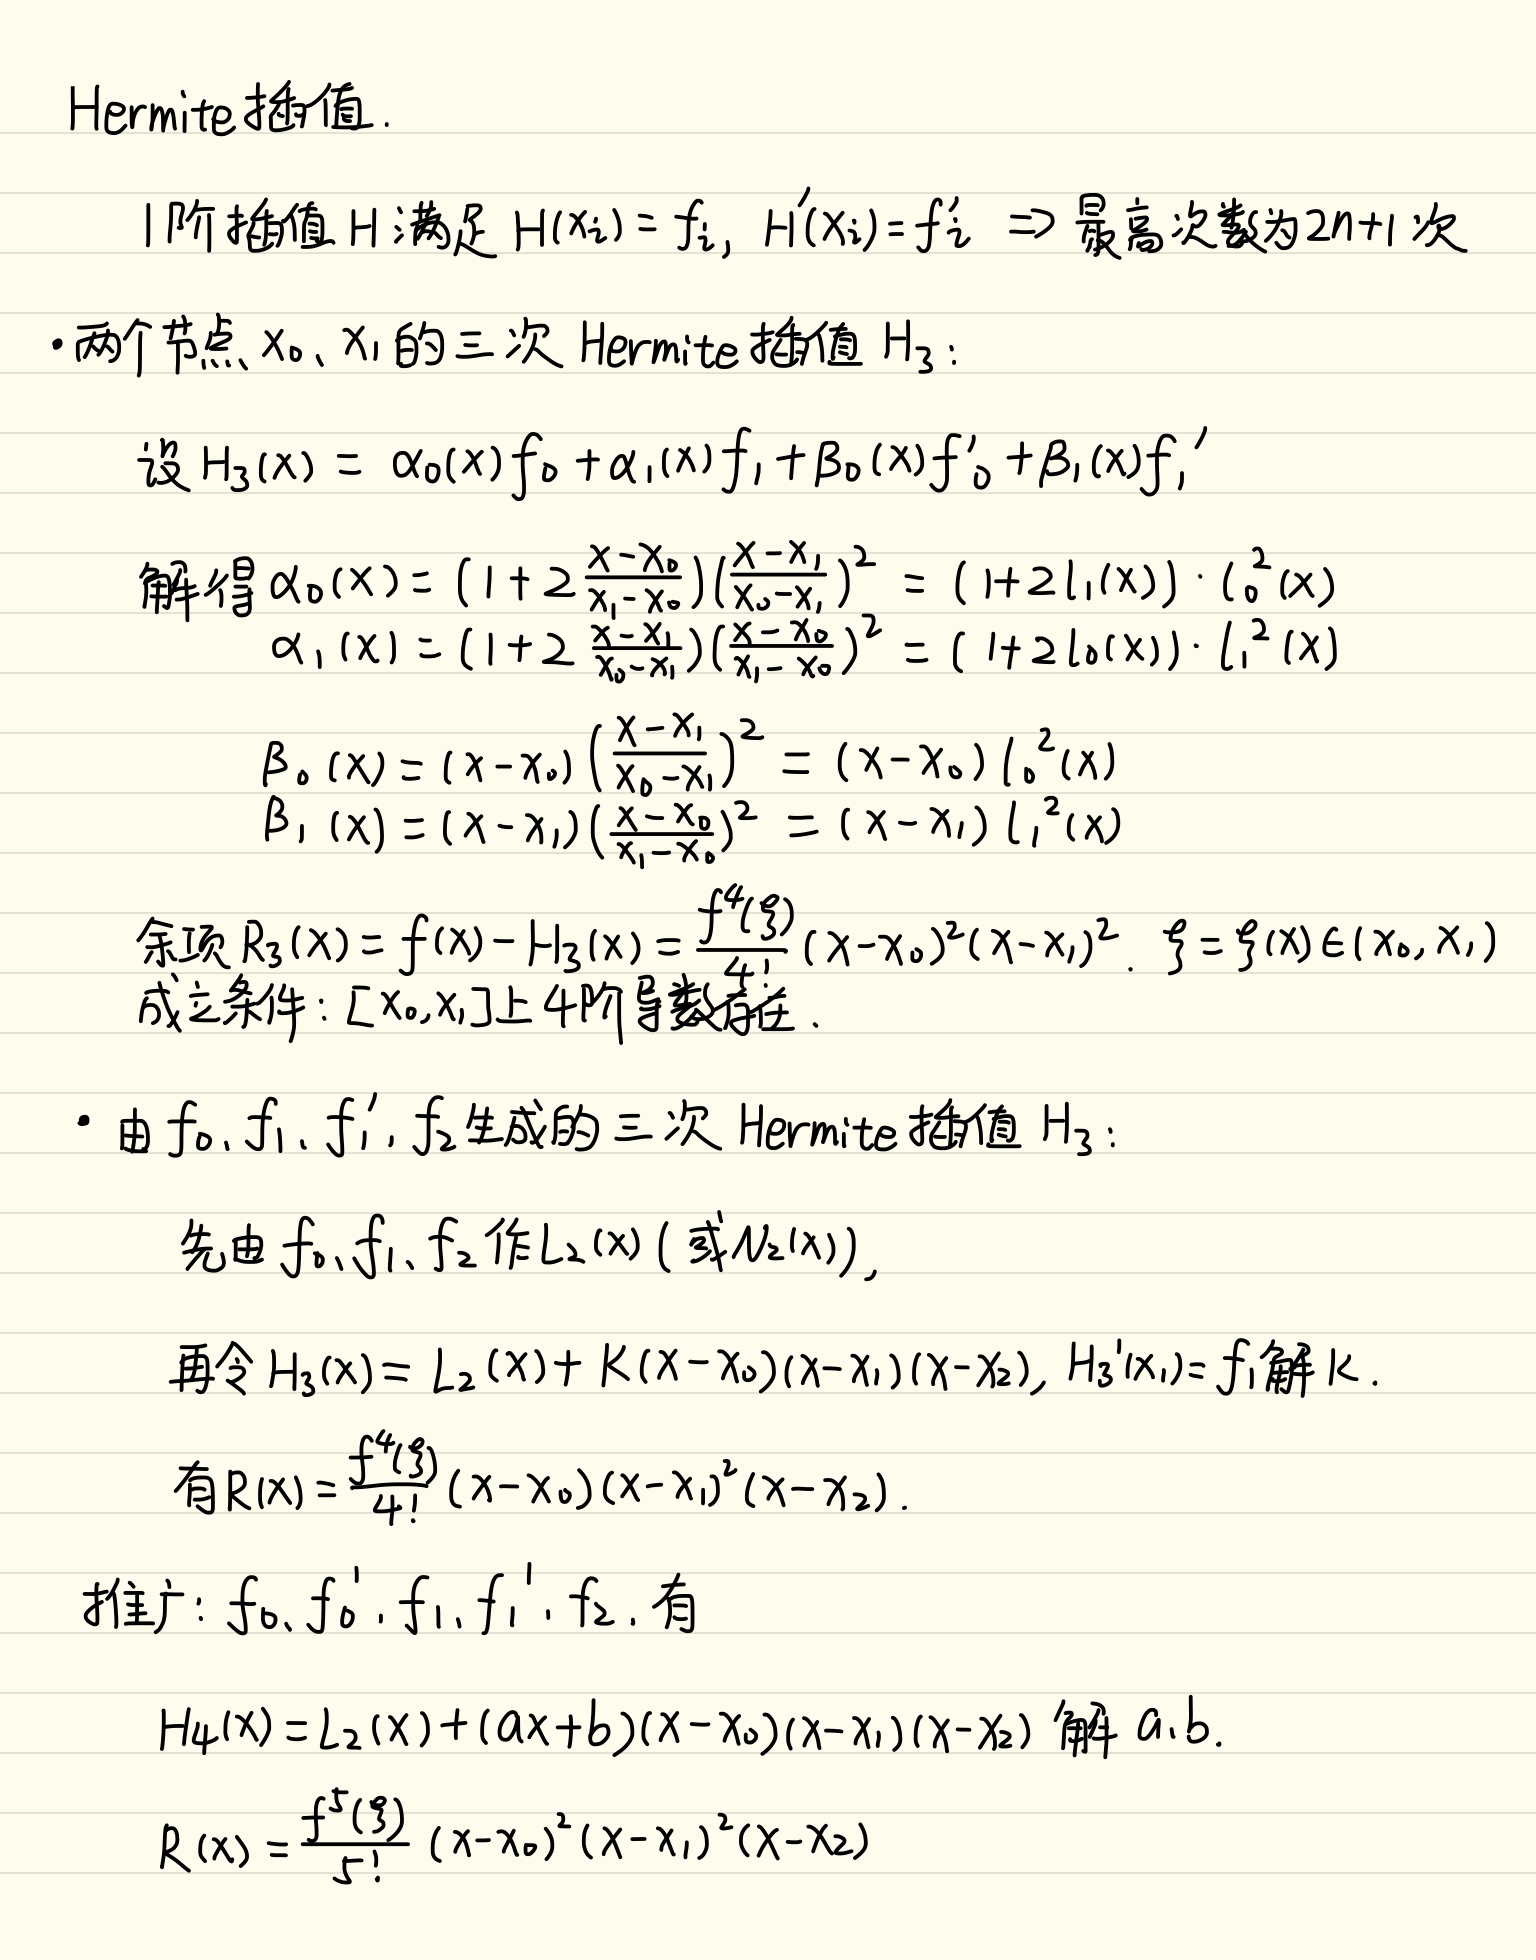 Hermite插值.
1阶插值H满足 H(xᵢ)=fᵢ, H'(xᵢ)=fᵢ' ⇒ 最高次数为2n+1次
·两个节点 x₀、x₁的三次 Hermite插值 H₃:
设 H₃(x) = α₀(x)f₀+α₁(x)f₁+β₀(x)f'₀+β₁(x)f₁'
解得 α₀(x) = (1+2\frac{x-x₀}{x₁-x₀})(\frac{x-x₁}{x₀-x₁})² = (1+2l₁(x))·l₀²(x)
α₁(x) = (1+2\frac{x-x₁}{x₀-x₁})(\frac{x-x₀}{x₁-x₀})² = (1+2l₀(x))·l₁²(x)
β₀(x) = (x-x₀)(\frac{x-x₁}{x₀-x₁})² = (x-x₀)l₀²(x)
β₁(x) = (x-x₁)(\frac{x-x₀}{x₁-x₀})² = (x-x₁)l₁²(x)
余项 R₃(x) = f(x)-H₃(x) = \frac{f⁴(ξ)}{4!}(x-x₀)²(x-x₁)². ξ=ξ(x)∈(x₀,x₁)
成立条件: [x₀,x₁]上4阶导数存在.
·由 f₀、f₁、f₁'、f₂生成的三次 Hermite插值 H₃:
先由 f₀、f₁、f₂ 作L₂(x) (或N₂(x)),
再令 H₃(x) = L₂(x)+K(x-x₀)(x-x₁)(x-x₂), H₃'(x₁)=f₁解K.
有R(x) = \frac{f⁴(ξ)}{4!}(x-x₀)(x-x₁)²(x-x₂).
推广: f₀、f₀'、f₁、f₁'、f₂. 有
H₄(x) = L₂(x)+(ax+b)(x-x₀)(x-x₁)(x-x₂) 解 a、b.
R(x) = \frac{f⁵(ξ)}{5!}(x-x₀)²(x-x₁)²(x-x₂)